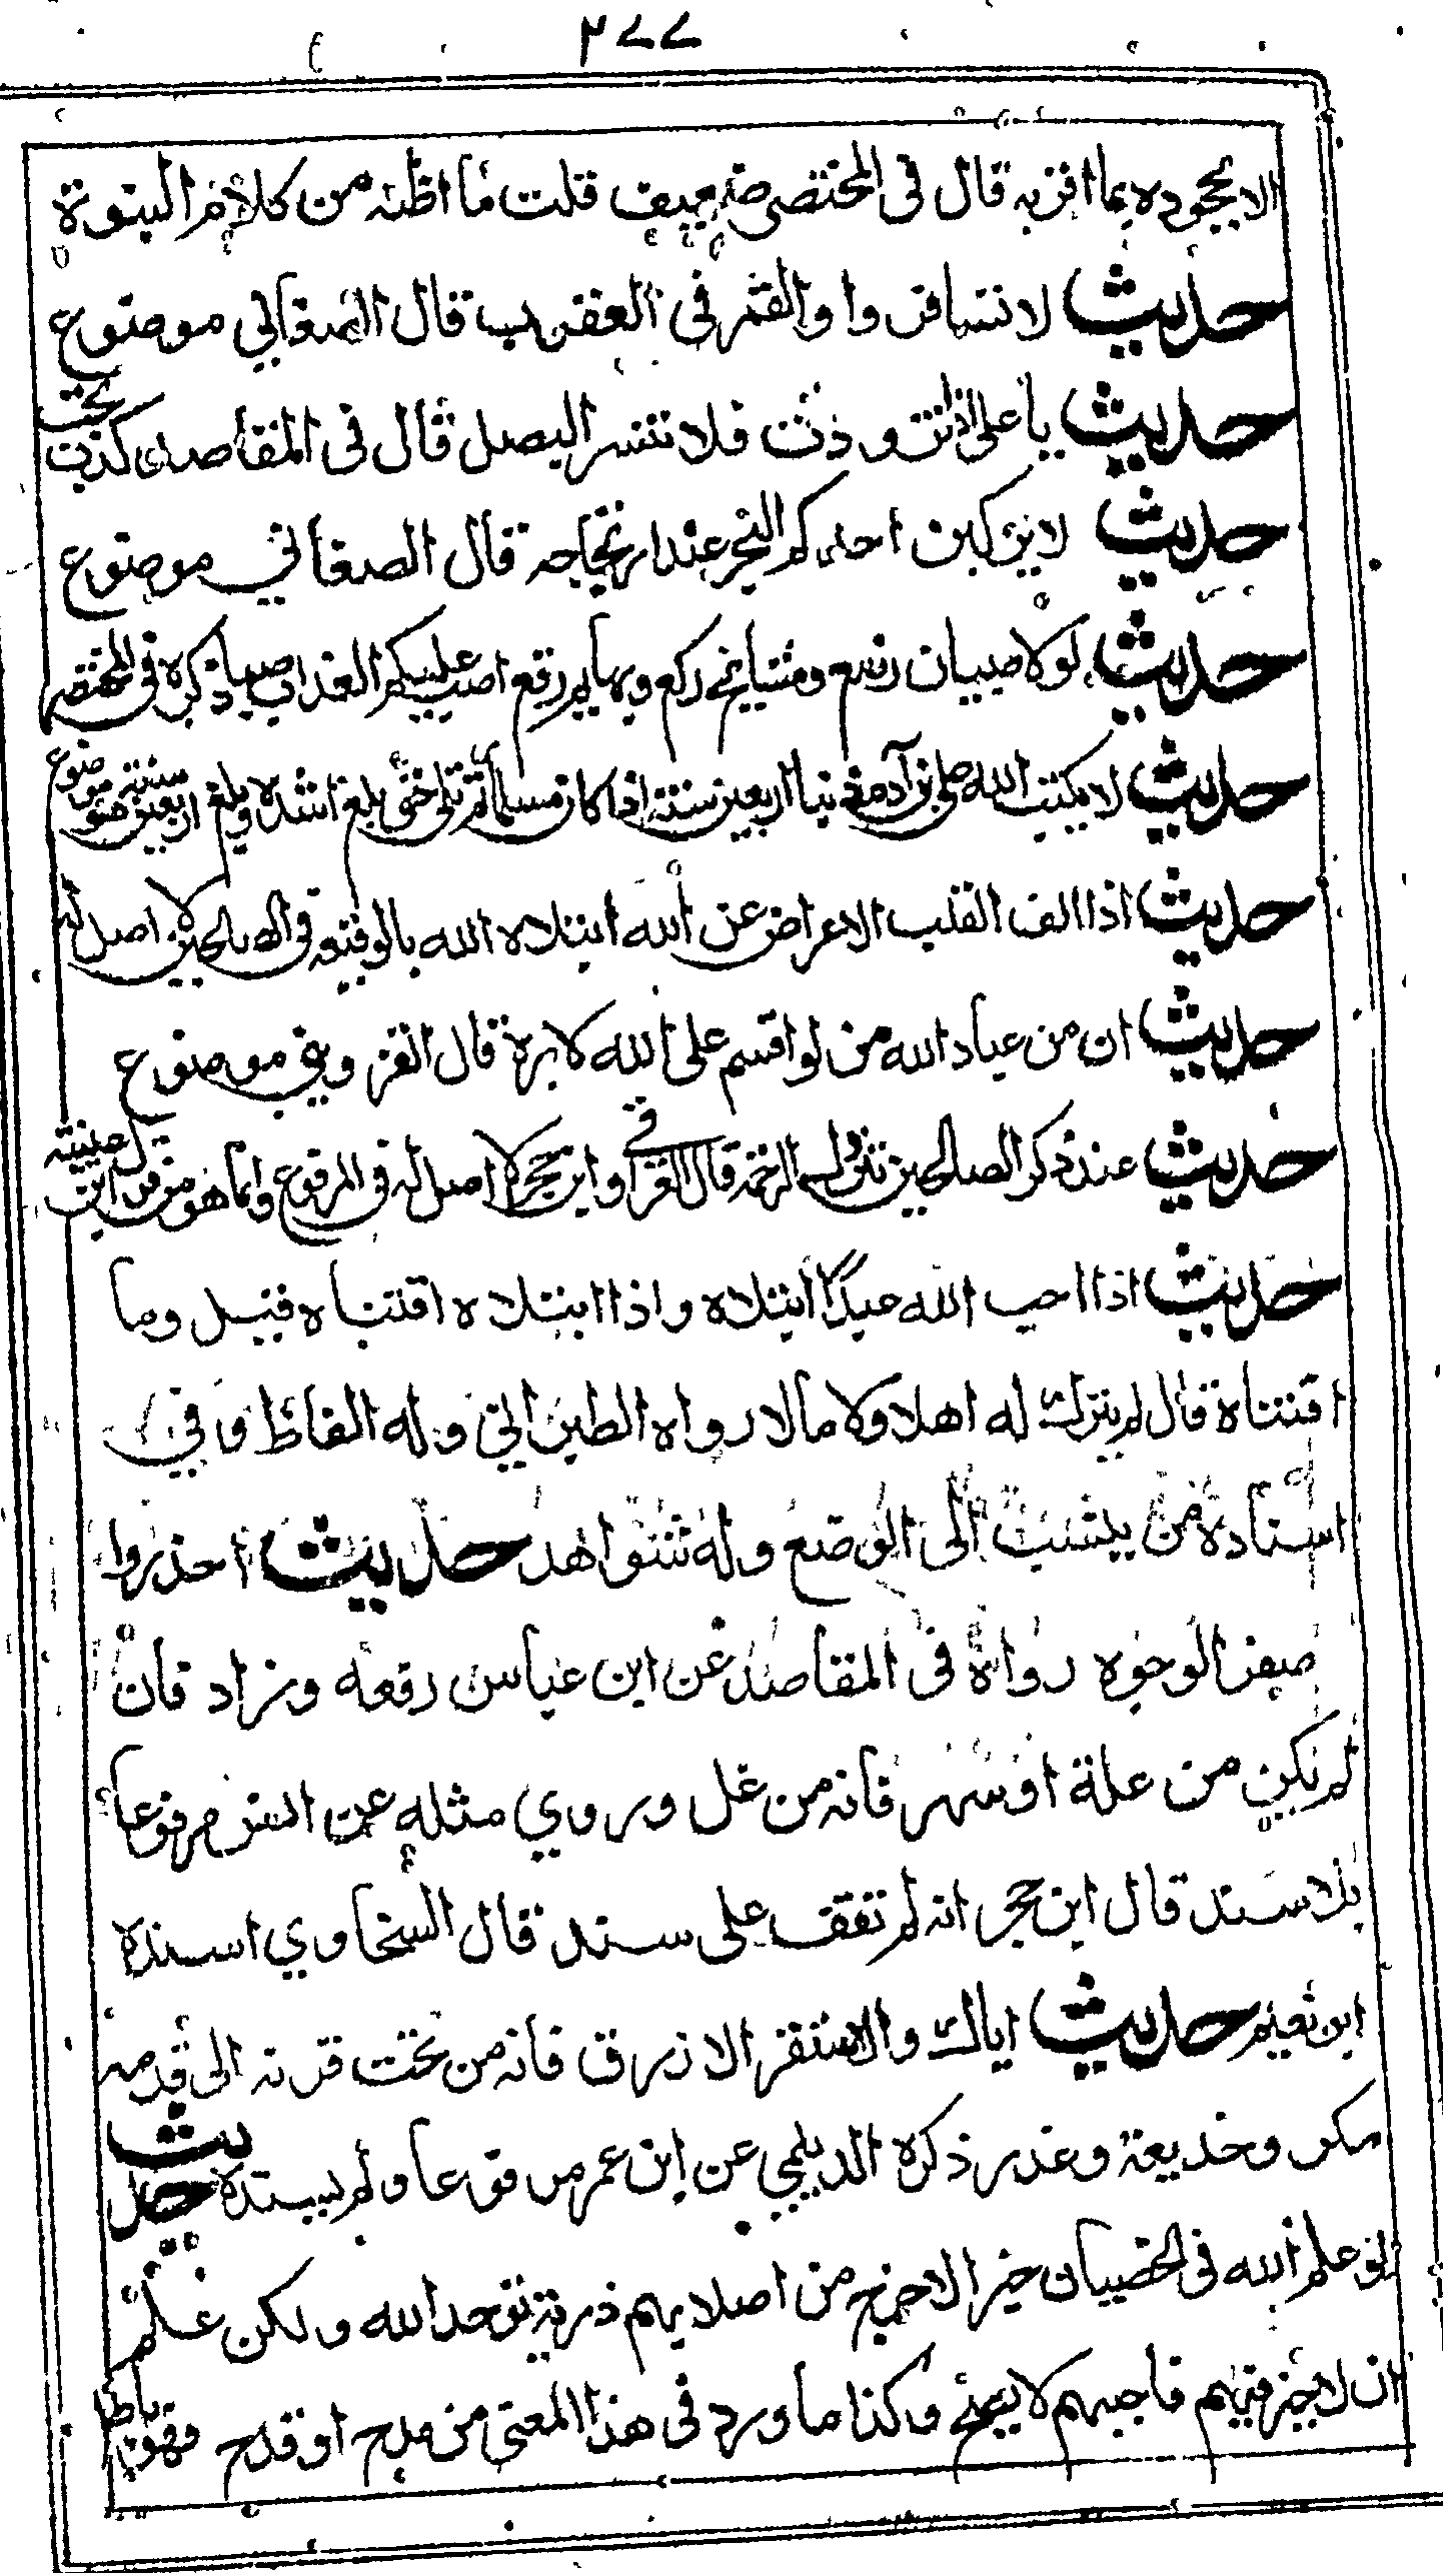 ٢٧٧
الا بجحوده بما اقر به قال فى المختصر ضعيف قلت ما اظنه من كلام النبوة
حديث لا تسافروا والقمر فى العقرب قال الصغاني موضوع
حديث يا على اذا تزودت فلا تنس البصل قال فى المقاصد كذب بحت
حديث لا يركبن احدكم البحر عند ارتجاجه قال الصغاني موضوع
حديث لولا صبيان رضع ومشايخ ركع وبهايم رتع لصب عليكم العذاب صبا ذكره فى المختصر
حديث لا يكتب الله على ابن آدم ذنبا اربعين سنة اذا كان مسلما ثم تلى حتى بلغ اشده وبلغ اربعين سنة موضوع
حديث اذا الف القلب الاعراض عن الله ابتلاه الله بالوقيعه فى الصالحين لا اصل له
حديث ان من عباد الله من لو اقسم على الله لابره قال القزوينى موضوع
حديث عند ذكر الصلحين تنزل الرحمة قال العراقى وابن حجر لا اصل له فى المرفوع وانما هو من قول ابن عيينه
حديث اذا احب الله عبدا ابتلاه واذا ابتلاه اقتناه قيل وما
اقتناه قال لم يترك له اهلا ولا مالا رواه الطبرانى وله الفاظ وفي
اسناده من ينسب الى الوضع وله شواهد حديث احذروا
صفر الوجوه رواه فى المقاصد عن ابن عباس رفعه وزاد فان
لم يكن من علة او سهر فانه من غل وروي مثله عن انس مرفوعا
بلا سند قال ابن حجر انه لم نقف على سند قال السخاوي اسنده
ابن نعيم حديث اياك والاشقر الازرق فانه من تحت قرنه الى قدمه
مكر وخديعة وغدر ذكره الديلمي عن ابن عمر مرفوعا ولم يسنده حديث
لو علم الله فى الخصيان خيرا لاخرج من اصلابهم ذرية توحد الله ولكن علم
ان لا خير فيهم فاجبهم لا يصح وكذا ما ورد فى هذا المعنى من مدح او قدح فهو باطل